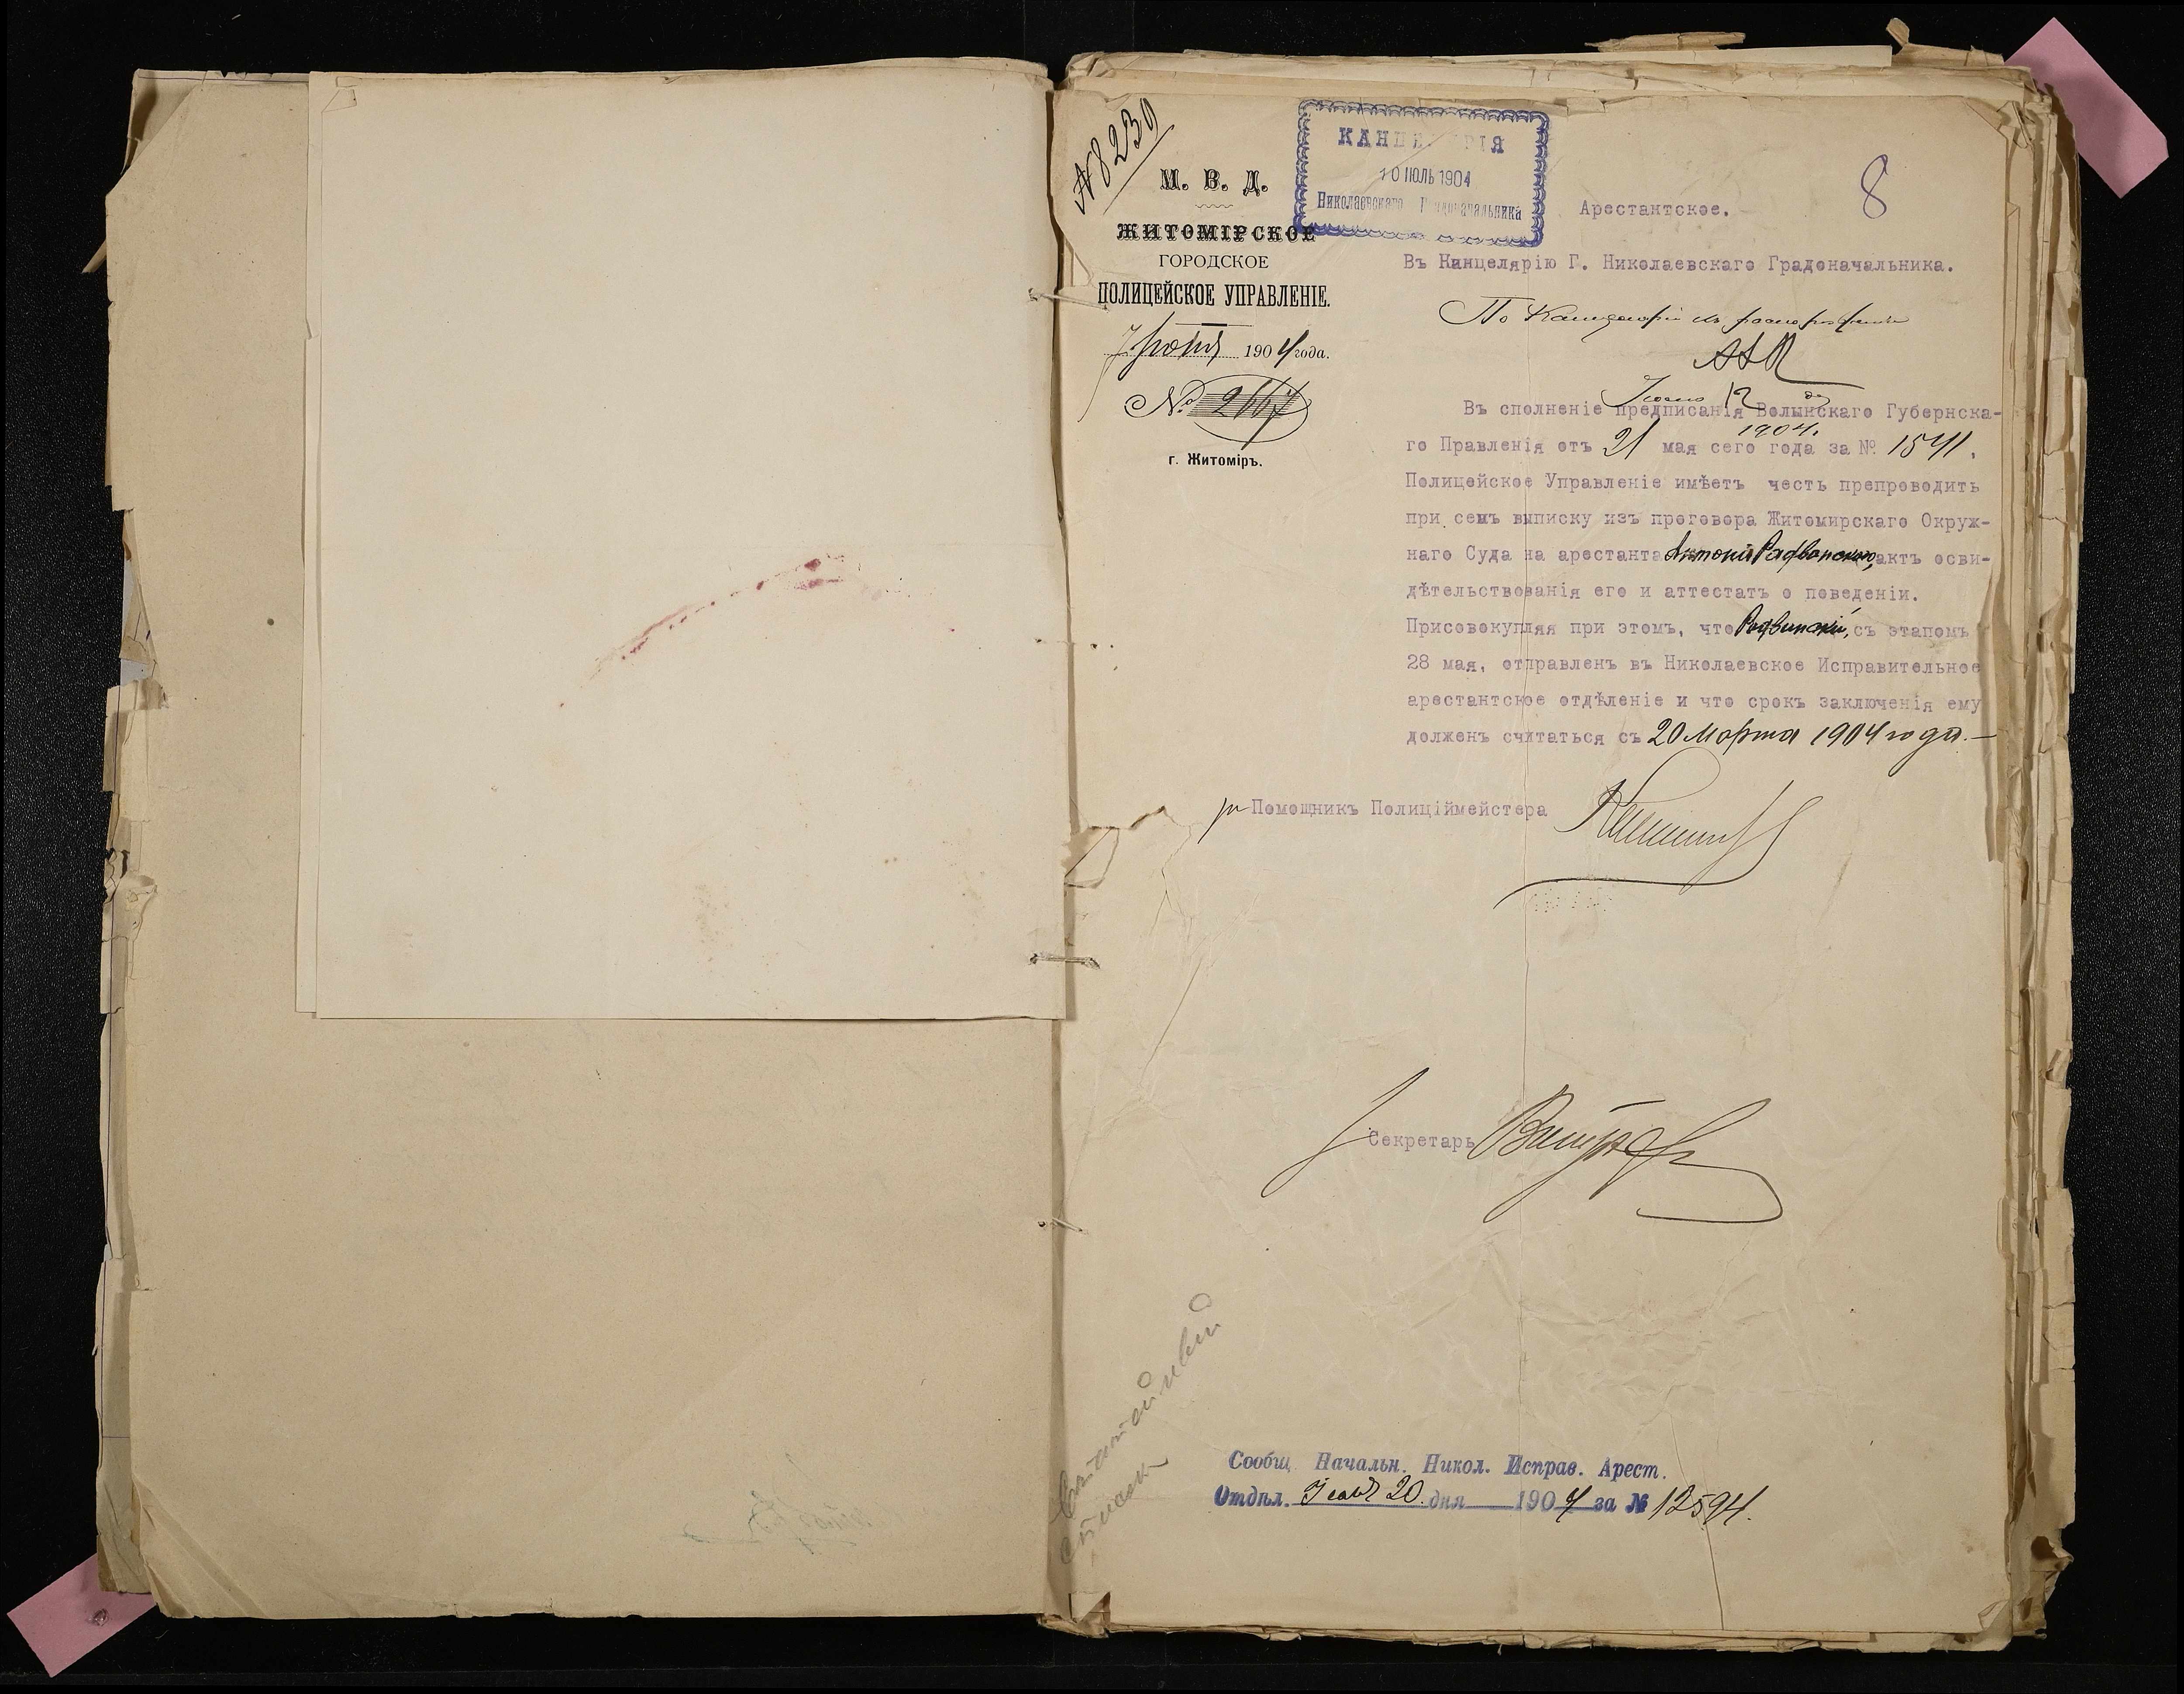 № 8239
М. В. Д.
ЖИТОМІРСКОЕ
ГОРОДСКОЕ
ПОЛИЦЕЙСКОЕ УПРАВЛЕНІЕ.
7 1904 года.
№ 2667
г. Житоміръ.
КАНЦЕ РІЯ
10 ІЮЛЬ 1904
Николаевскаго Градоначальника
Арестантское.
8
Въ Канцелярію Г. Николаевскаго Градоначальника.
По Канцеляріи къ распоряженію
12
1904.
Въ сполненіе предписанія Волынскаго Губернска-
го Правленія отъ 21 мая сего года за № 1541,
Полицейское Управленіе имѣетъ честь препроводить
при семъ выписку изъ проговора Житомирскаго Окруж-
наго Суда на арестанта Антонія Радванскаго, актъ осви-
дѣтельствованія его и аттестатъ о поведеніи.
Присовокупляя при этомъ, что Радванскій, съ этапомъ
28 мая, отправленъ въ Николаевское Исправительное
арестантское отдѣленіе и что срокъ заключенія ему
долженъ считаться съ 20 Марта 1904 года.—
Помощникъ Полиціймейстера
Секретарь
Сообщ. Начальн. Никол. Исправ. Арест.
Отдѣл. 20 дня 1904 за № 12594.